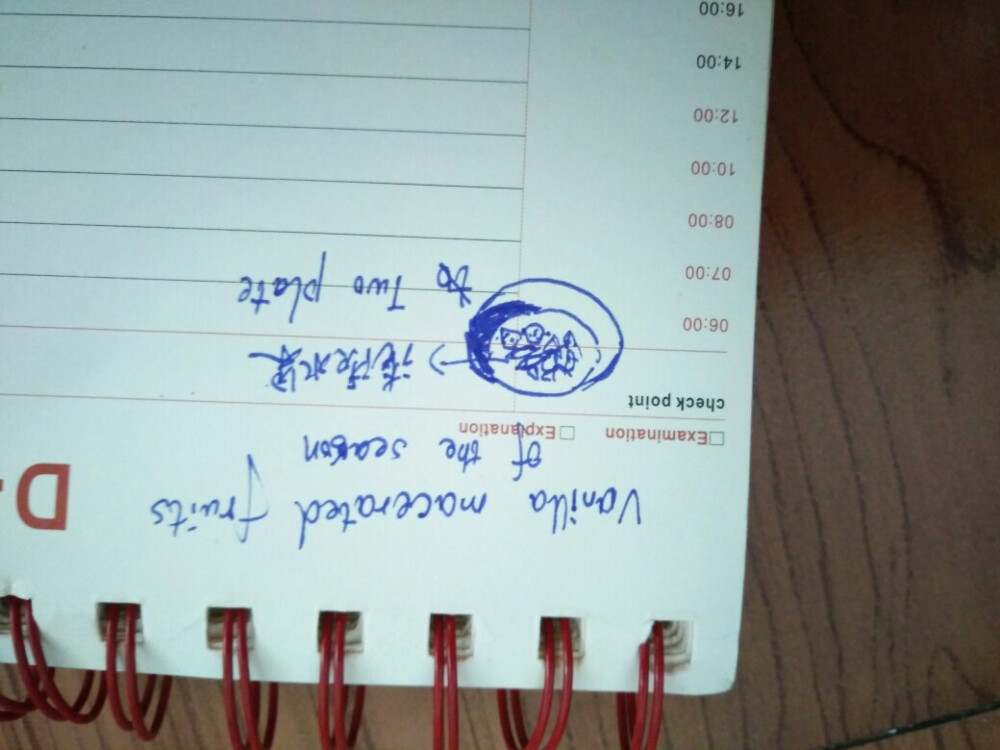 Vanilla macerated fruits
of the season
D-
Examination Explanation
check point
水果
06:00
Two plate
07:00
08:00
10:00
12:00
14:00
16:00